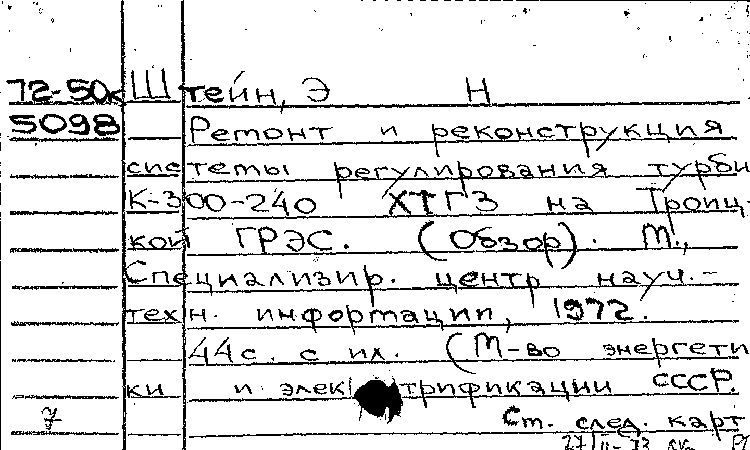 72-50к Штейн, Э Н
5098 Ремонт и реконструкция
системы регулирования турби
К-300-240 ХТГЗ на Троиц-
кой ГРЭС. (Обзор). М.,
Специализир. центр науч.-
техн. информации, 1972.
44с. с ил. (М-во энергети
ки и электрификации СССР.
7 Ст. след. карт
27/II-73